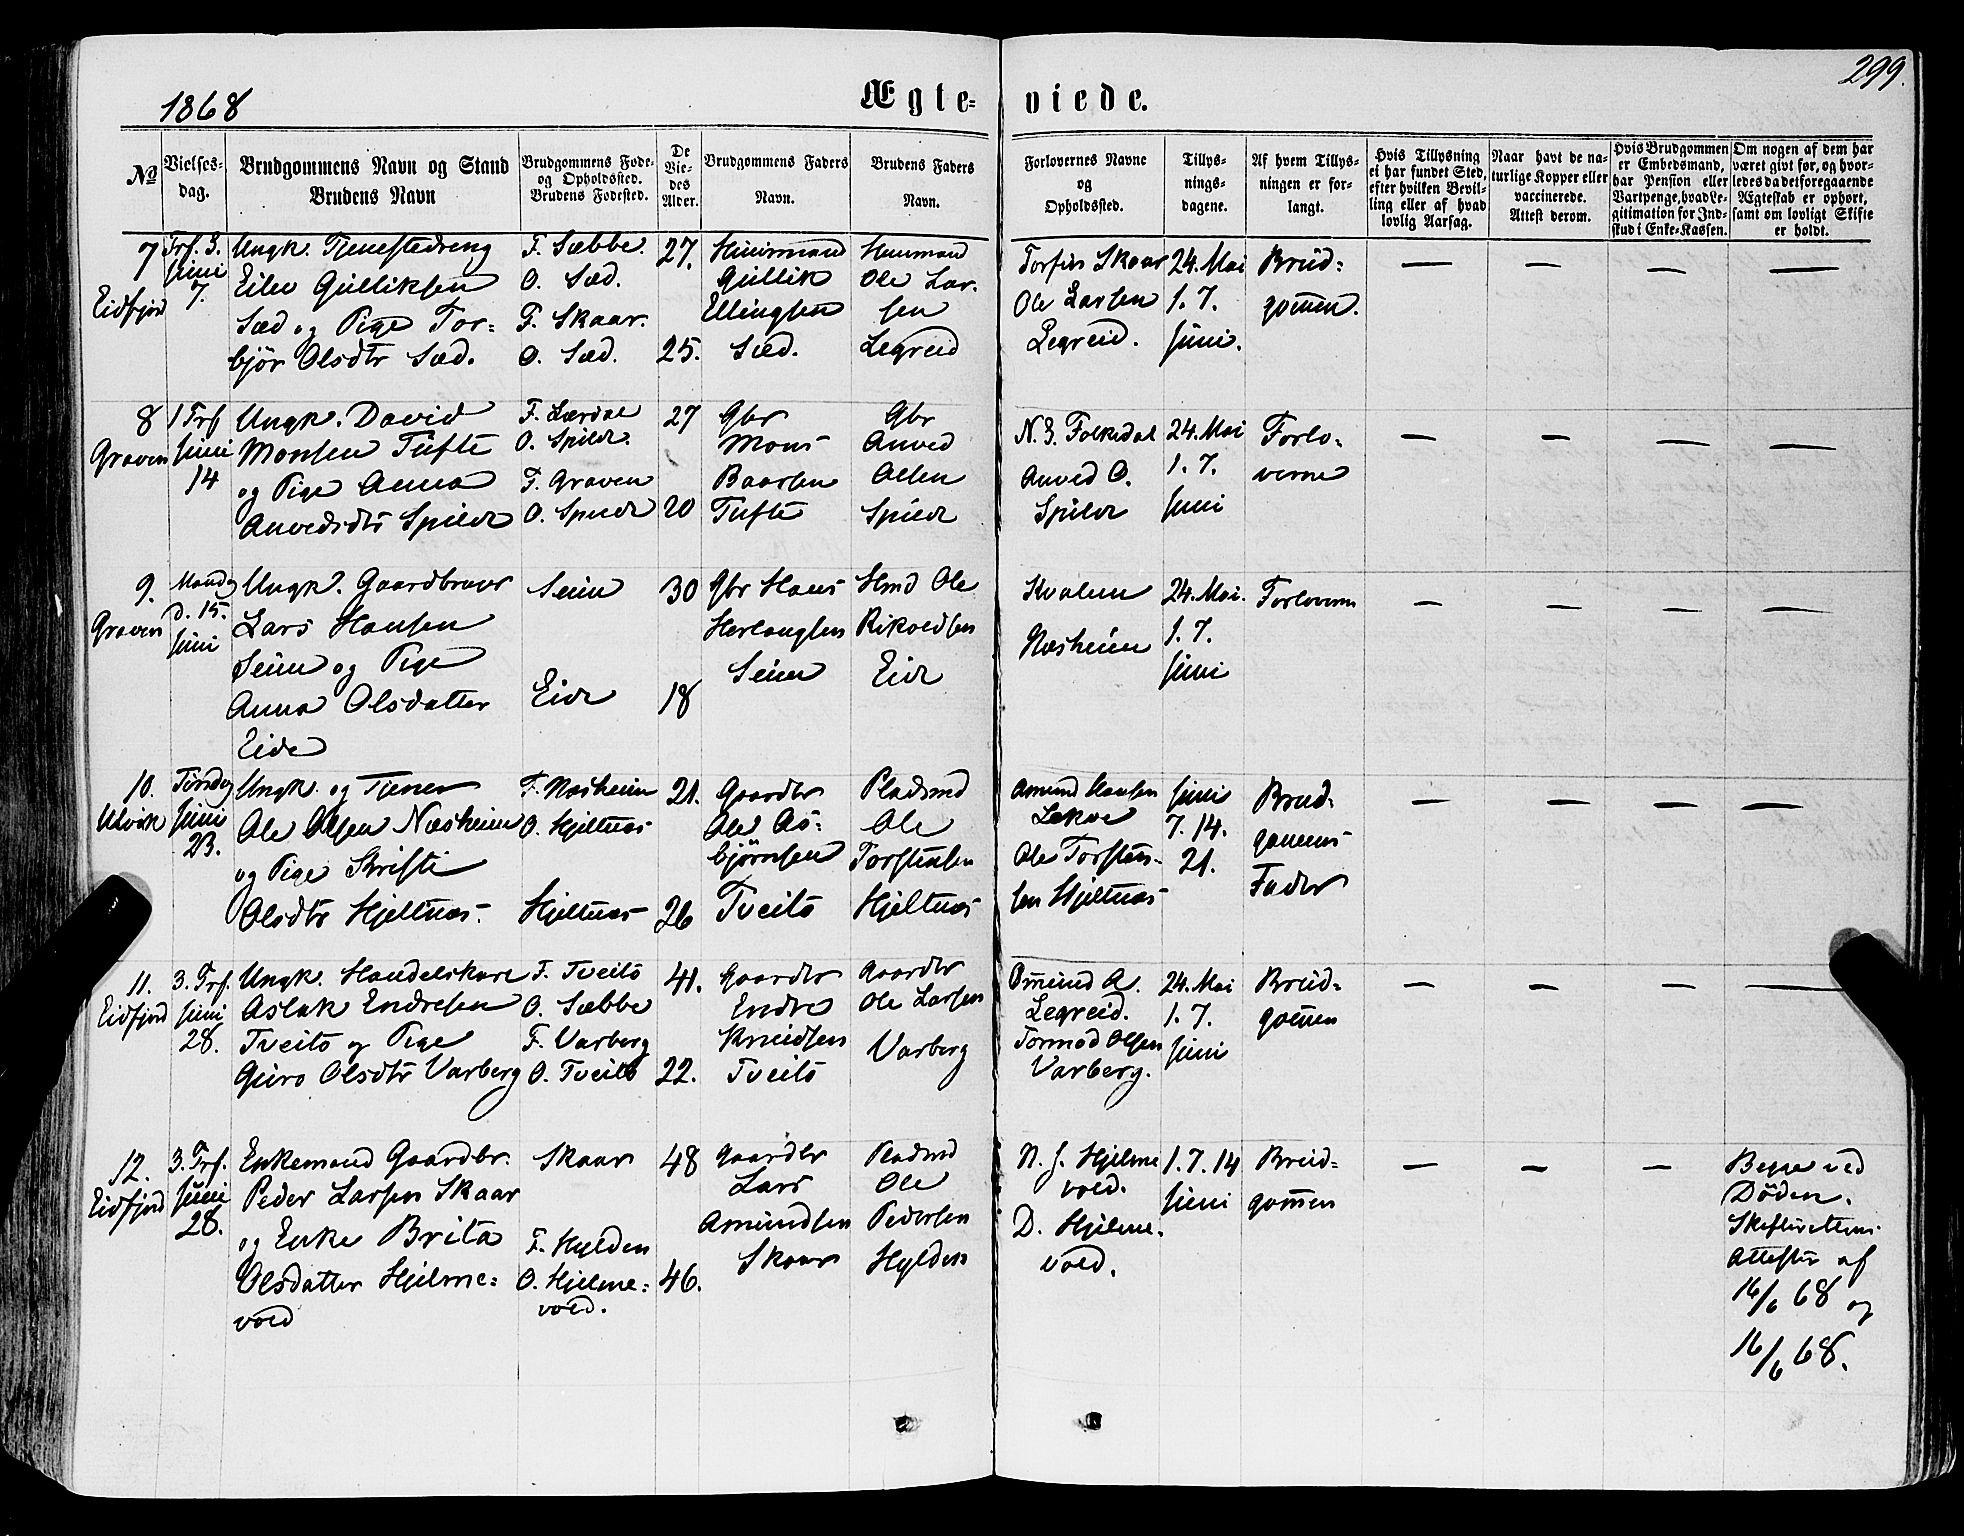 299.
1868
Ægte=
viede.
No
Vielses-
dag.
Brudgommens Navn og Stand
Brudens Navn
Brudgommens Føde-
og Opholdssted.
Brudens Fødested.
De
Vie-
des
Alder.
Brudgommens Faders
Navn.
Brudens Faders
Navn.
Forlovernes Navne
og
Opholdssted.
Tillys-
nings-
dagene.
Af hvem Tillys-
ningen er for-
langt.
Hvis Tillysning
ei har fundet Sted,
efter hvilken Bevil-
ling eller af hvad
lovlig Aarsag.
Naar havt de na-
turlige Kopper eller
vaccinerede.
Attest derom.
Hvis Brudgommen
er Embedsmand,
har Pension eller
Vartpenge, hvad Le-
gitimation for Ind-
skud i Enke-Kassen.
Om nogen af dem har
været givt før, og hvor-
ledes da det foregaaende
Ægteskab er ophørt,
samt om lovligt Skifte
er holdt.
7
Eidfjord
Trf. S.
Juni
7.
Ungk. Tjenestedreng
Eilev Gulliksen
Sæd og Pige Tor=
bjør Olsdtr Sæd.
F. Sæbbe.
O. Sæd.
F. Skaar.
O. Sæd.
27.
25.
Huusmand
Gullik
Ellingsen
Sæd.
Huusmand
Ole Lar-
sen
Legreid
Torfin Skaar
Ole Larsen
Legreid.
24. Mai
1. 7.
Juni.
Brud=
gommen.
— — — —
8
Graven
1 Trf
Juni
14
Ungk. David
Monsen Tufte
og Pige Anna
Anvedsdtr Spilde
F. Lærdal
O. Spilde.
F. Graven
O. Spilde
27
20
Gbr
Mons
Baarsen
Tufte
Gbr
Anved
Olsen
Spilde
N. S. Folkedal
Anved O.
Spilde
24. Mai
1. 7.
Juni
Forlo-
verne
— — — —
9.
Graven
Mandag
D. 15.
Juni
Ungk. Gaardbruger
Lars Hansen
Seim og Pige
Anna Olsdatter
Eide
Seim
Eide
30
18
Gbr Hans
Herlaugsen
Seim
Hmd Ole
Rikoldsen
Eide
Kvalem
Næsheim
24. Mai.
1. 7.
Juni
Forloverne
— — — —
10.
Ulvik
Tirsdag
Juni
23.
Ungk. og Tjener
Ole Olsen Næsheim
og Pige Kristi
Olsdtr Hjeltnæs.
F. Næsheim
O. Hjeltnæs
Hjeltnæs
21.
26
Gaardbr
Ole As=
bjørnsen
Tveito
Pladsmd
Ole
Torstensen
Hjeltnæs
Amund Hansen
Lekve
Ole Torsten-
sen Hjeltnæs
Juni
7. 14.
21.
Brud-
gommens
Fader
— — — —
11.
Eidfjord
3. Trf.
Juni
28.
Ungk. Handelskarl
Aslak Endresen
Tveito og Pige
Guro Olsdtr Varberg
F. Tveito
O. Sæbbe
F. Varberg
O. Tveito
41.
22.
Gaardbr
Endre
Knudsen
Tveito
Gaardbr
Ole Larsen
Varberg
Omund A.
Legreid.
Tormod Olsen
Varberg.
24. Mai
1. 7.
Juni
Brud-
gommen
— — — —
12.
Eidfjord
3. Trf.
Juni
28.
Enkemand Gaardbr.
Peder Larsen Skaar
og Enke Brita
Olsdatter Hjelme=
vold
Skaar
F. Hylden
O. Hjelme=
vold.
48
46.
Gaardbr
Lars
Amundsen
Skaar
Pladsmd
Ole
Pedersen
Hylden
N. J. Hjelme
vold.
D. Hjelme-
vold.
1. 7. 14
Juni
Brud=
gommen
— — —
Begge ved
Døden.
Skifterettens
Attester af
16/6 68 og
16/6 68.